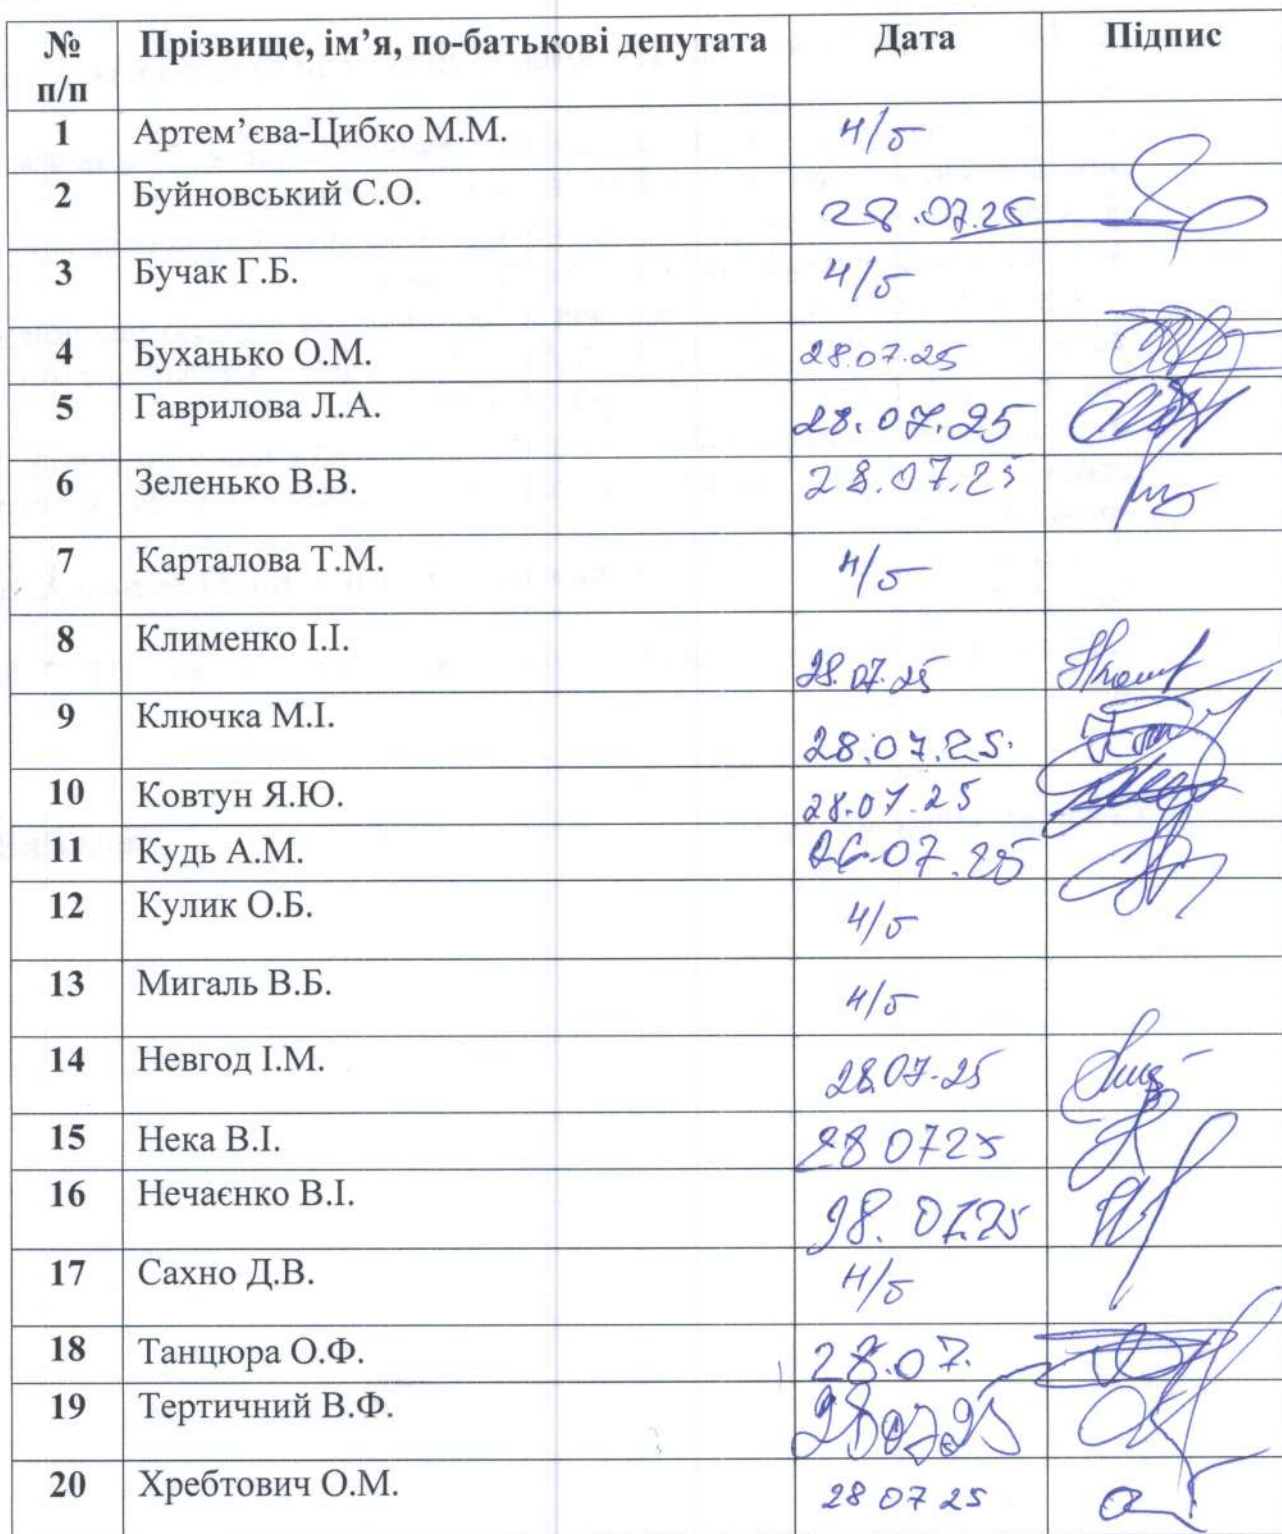 № п/п Прізвище, ім’я, по-батькові депутата Дата Підпис
1 Артем’єва-Цибко М.М. н/б
2 Буйновський С.О. 28.07.25
3 Бучак Г.Б. н/б
4 Буханько О.М. 28.07.25
5 Гаврилова Л.А. 28.07.25
6 Зеленько В.В. 28.07.25
7 Карталова Т.М. н/б
8 Клименко І.І. 28.07.25
9 Ключка М.І. 28.07.25.
10 Ковтун Я.Ю. 28.07.25
11 Кудь А.М. 07.25
12 Кулик О.Б. н/б
13 Мигаль В.Б. н/б
14 Невгод І.М. 28.07.25
15 Нека В.І. 28 07 25
16 Нечаєнко В.І. 28.07.25
17 Сахно Д.В. н/б
18 Танцюра О.Ф. 28.07.
19 Тертичний В.Ф. 28 07 25
20 Хребтович О.М. 28 07 25